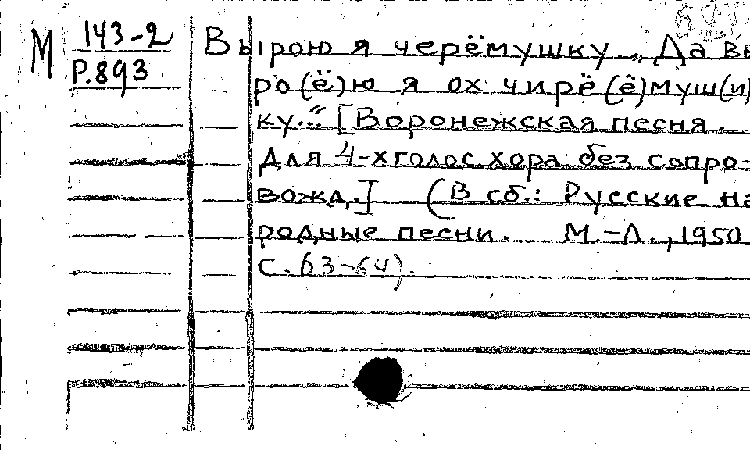 М 143-2
Р.893
Вырою я черёмушку. "Да вы
ро(ё)ю я ох чирё(ё)муш(и)
ку..." [Воронежская песня.
Для 4-х голос. хора без сопро-
вожд.] (В сб.: Русские на
родные песни. М.-Л., 1950
С. 63-64).